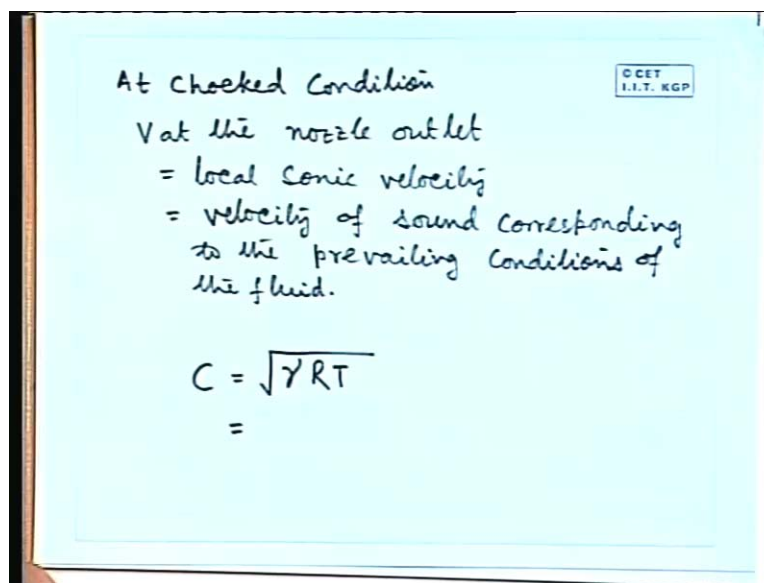 At Choked Condition
© CET
I.I.T. KGP
V at the nozzle outlet
= local Sonic velocity
= velocity of sound Corresponding
to the prevailing Conditions of
the fluid.
C = √γRT
=